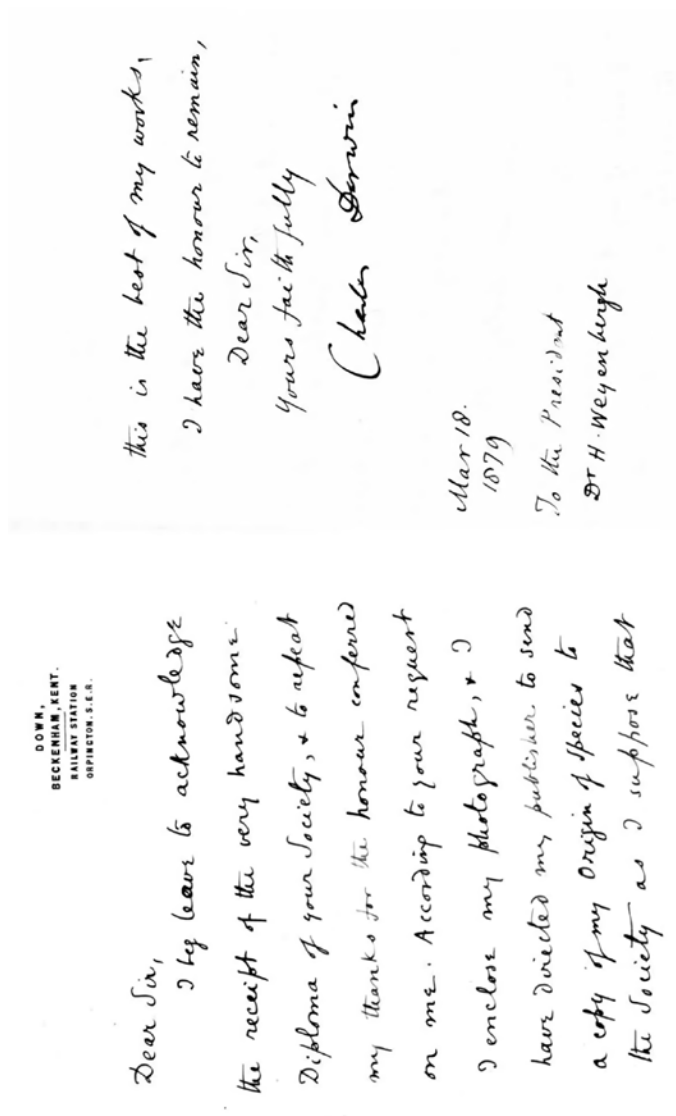 DOWN,
BECKENHAM, KENT.
RAILWAY STATION
ORPINGTON. S.E.R.
Dear Sir,
I beg leave to acknowledge
the receipt of the very handsome
Diploma of your Society, & to repeat
my thanks for the honour conferred
on me. According to your request
I enclose my photograph, & I
have directed my publisher to send
a copy of my Origin of Species to
the Society as I suppose that
this is the best of my works,
I have the honour to remain,
Dear Sir,
Yours faithfully
Charles Darwin
Mar 18.
1879
To the President
Dr H. Weyenbergh